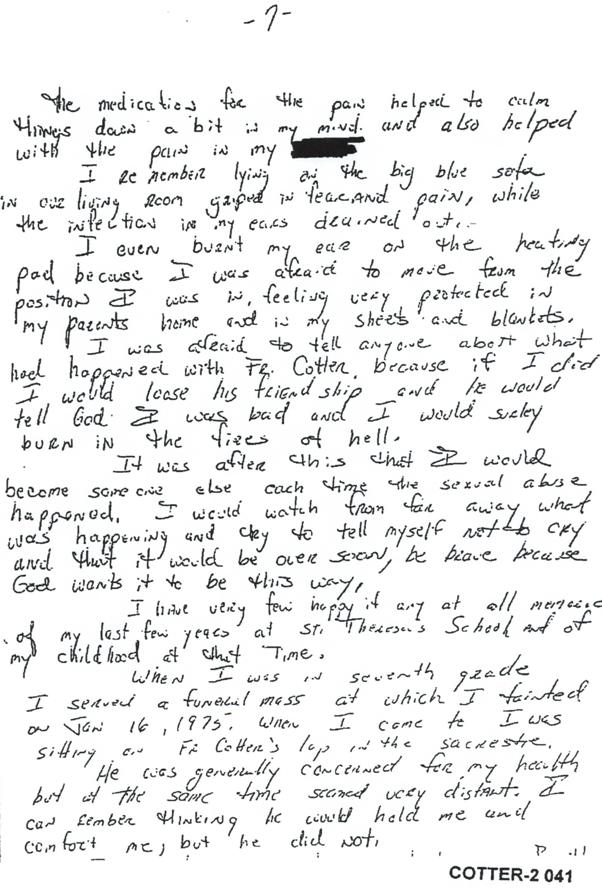 -7-
The medication for the pain helped to calm
things down a bit in my mind. and also helped
with the pain in my
I remember lying on the big blue sofa
in our living room griped in fear and pain, while
the infection in my ears drained out.
I even burnt my ear on the heating
pad because I was afraid to move from the
position I was in, feeling very protected in
my parents home and in my sheets and blankets.
I was afraid to tell anyone about what
had happened with Fr. Cotter, because if I did
I would loose his friendship and he would
tell God I was bad and I would surley
burn in the fires of hell.
It was after this that I would
become someone else each time the sexual abuse
happened, I would watch from far away what
was happening and cry to tell myself not to cry
and that it would be over soon, be brave because
God wants it to be this way,
I have very few happy if any at all
of my last few years at St. Theresa's School and of
my childhood at that Time.
When I was in seventh grade
I served a funeral mass at which I fainted
on Jan 16, 1975. When I came to I was
sitting on Fr Cotter's lap in the sacrestre.
He was generally concerned for my health
but at the same time seamed very distant. I
can rember thinking he would hold me and
comfort me, but he did not.
COTTER-2 041